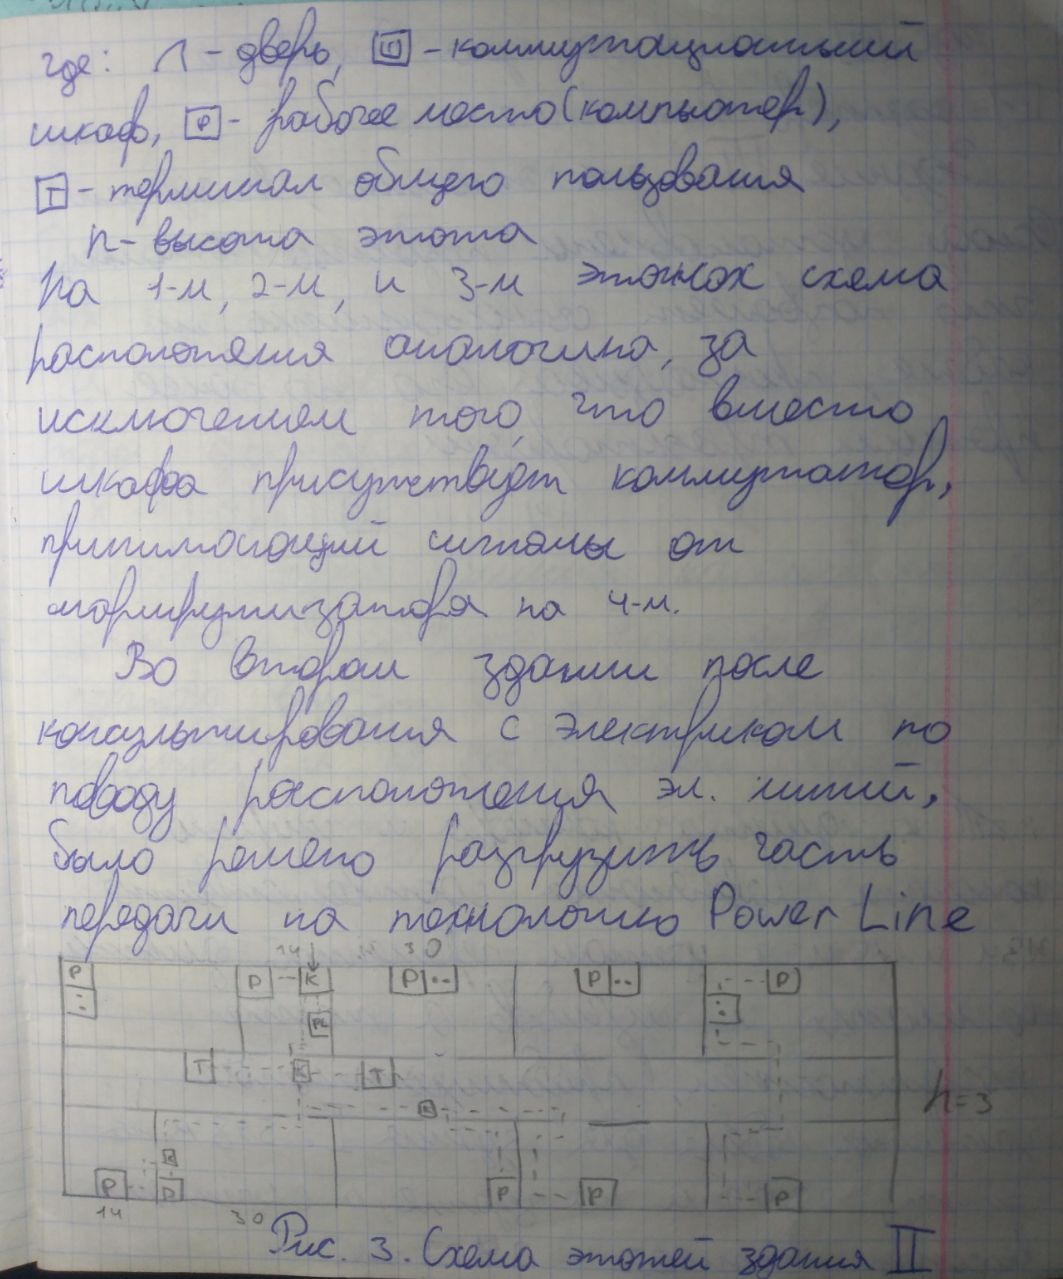 где: - дверь, Ш - коммутационный
шкаф, Р - рабочее место (компьютер),
Т - терминал общего пользования
h - высота этажа
На 1-м, 2-м, и 3-м этажах схема
расположения аналогична, за
исключением того, что вместо
шкафа присутствует коммутатор,
принимающий сигналы от
маршрутизатора на 4-м.
Во втором здании после
консультирования с электриком по
поводу расположения эл. линий,
было решено разгрузить часть
передачи на технологию Power Line
14 30
Р Р К Р Р Р
К
Т К Т
К
h=3
К
Р Р Р Р Р
14 30
Рис. 3. Схема этажей здания II